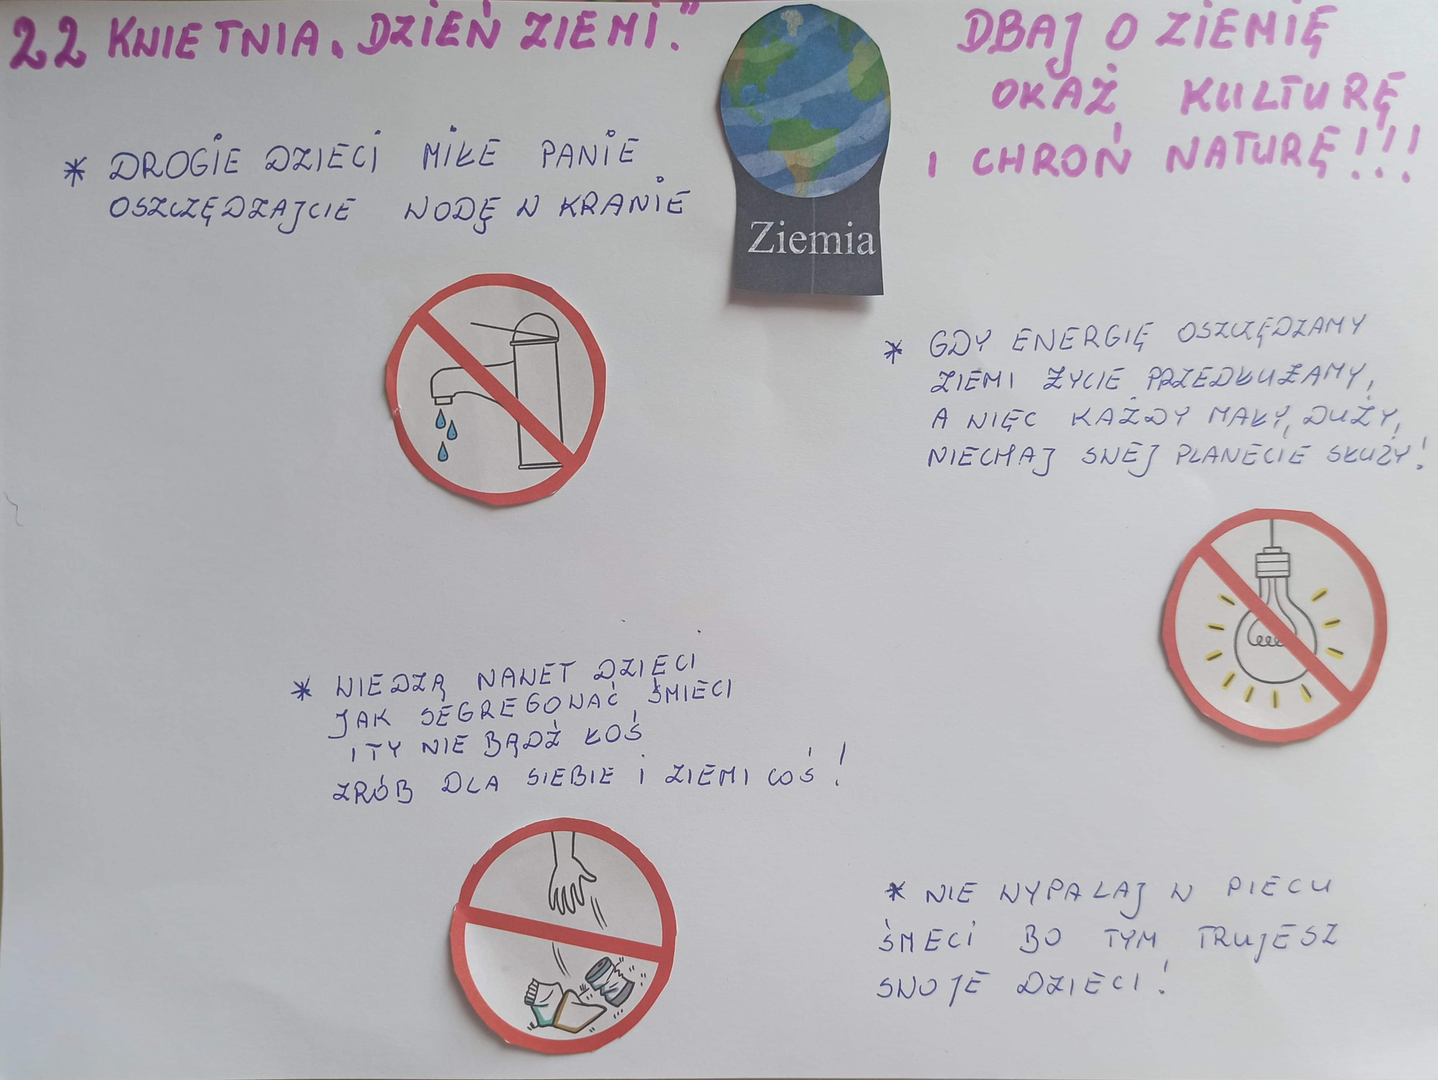 22 KWIETNIA „DZIEŃ ZIEMI."
DBAJ O ZIEMIĘ
OKAŻ KULTURĘ
I CHROŃ NATURĘ!!!
Ziemia
* DROGIE DZIECI MIŁE PANIE
OSZCZĘDZAJCIE WODĘ W KRANIE
* GDY ENERGIĘ OSZCZĘDZAMY
ZIEMI ŻYCIE PRZEDŁUŻAMY,
A WIĘC KAŻDY MAŁY, DUŻY,
NIECHAJ SWEJ PLANECIE SŁUŻY!
* WIEDZĄ NAWET DZIECI
JAK SEGREGOWAĆ ŚMIECI
I TY NIE BĄDŹ ŁOŚ
ZRÓB DLA SIEBIE I ZIEMI COŚ!
* NIE WYPALAJ W PIECU
ŚMECI BO TYM TRUJESZ
SWOJE DZIECI!